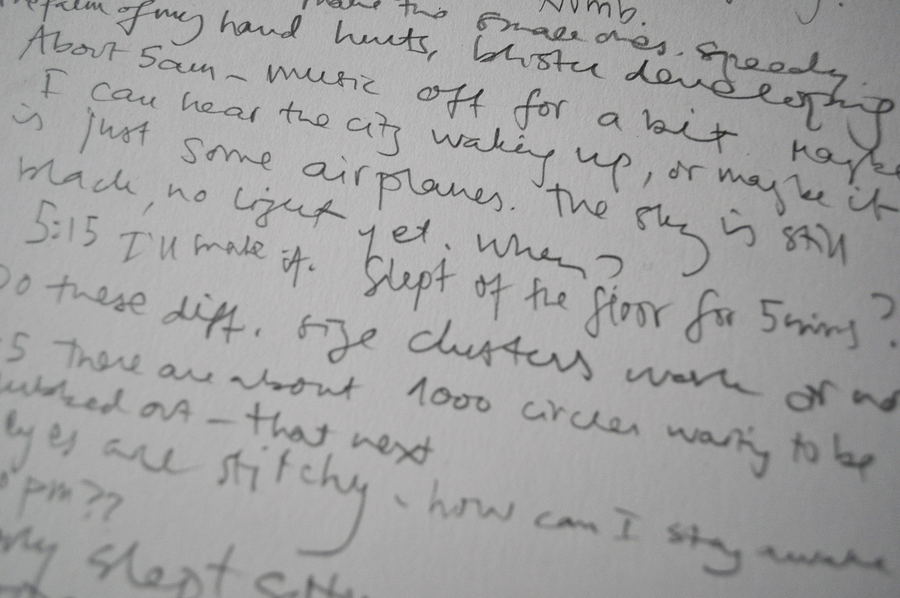 numb.
palm of my hand hurts, blister developing
small ones. speedy
About 5am – music off for a bit. Maybe
I can hear the city waking up, or maybe it
is just some airplanes. The sky is still
black, no light yet. when?
5:15 I'll make it. Slept of the floor for 5mins?
Do these diff. size clusters work or no
5 There are about 1000 circles waiting to be
out – that next
eyes are stitchy – how can I stay awake
pm??
slept